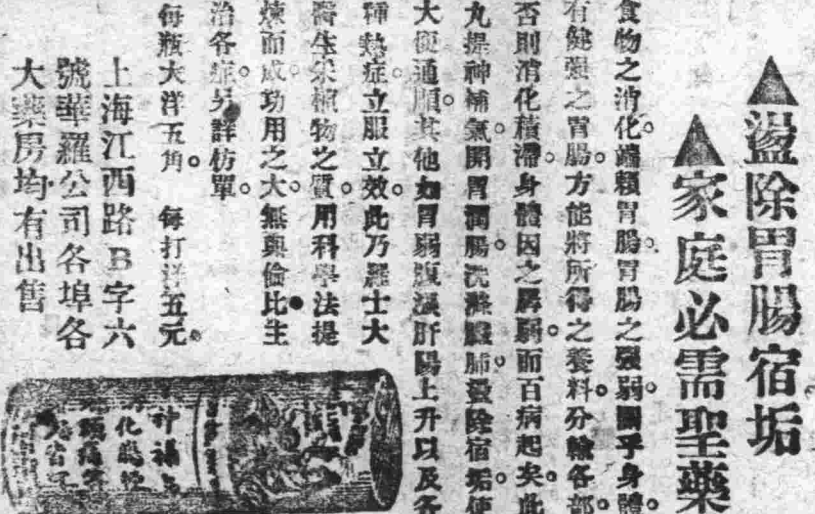 ▲盪除胃腸宿垢
▲家庭必需聖藥
食物之消化。端賴胃腸。胃腸之强弱。關乎身體。
有健强之胃腸。方能將所得之養料。分輸各部。
否則消化積滯。身體因之孱弱。而百病起矣。此
丸提神補氣。開胃潤腸。洗滌臟肺。盪除宿垢。使
大便通順。其他如胃弱腹漲肝陽上升以及各
種熱症。立服立效。此乃羅士大
醫生采植物之質。用科學法提
煉而成。功用之大。無與倫比。主
治各症。另詳仿單。
每瓶大洋五角。 每打洋五元。
上海江西路B字六
號華羅公司各埠各
大藥房均有出售
神補
化